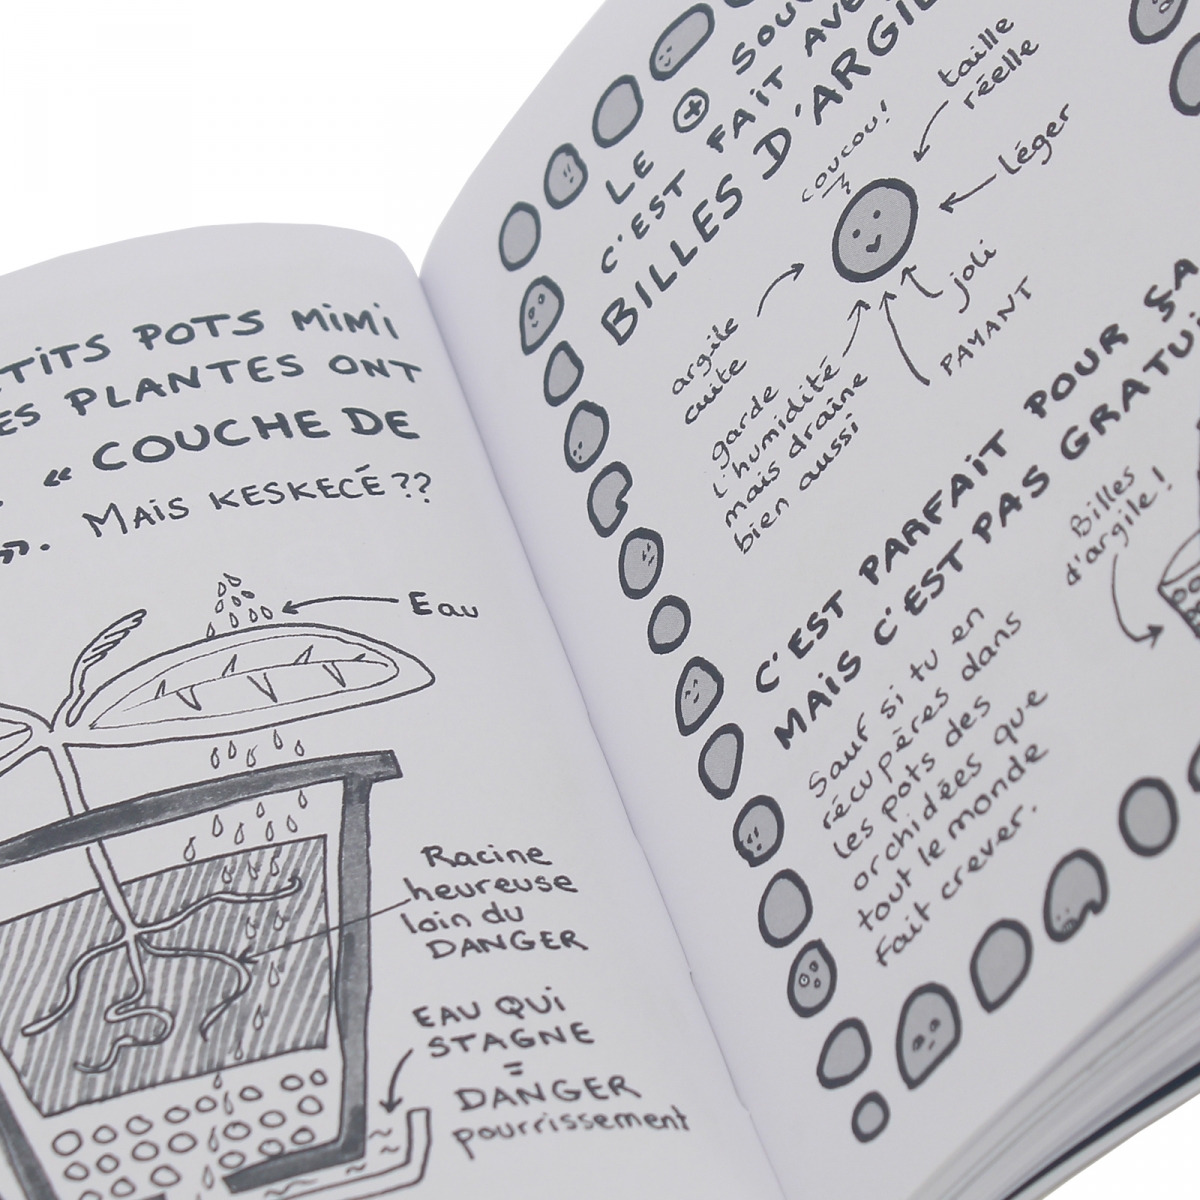 PETITS POTS MIMI
PLANTES ONT
« COUCHE DE
». MAIS KESKECÉ??
Eau
Racine
heureuse
loin du
DANGER
EAU QUI
STAGNE
=
DANGER
pourrissement
LE +
C'EST FAIT
BILLES D'ARGILE
coucou!
taille
réelle
léger
joli
PAYANT
argile
cuite
garde
l'humidité
mais draine
bien aussi
C'EST PARFAIT POUR ÇA
MAIS C'EST PAS GRATUIT
Billes
d'argile!
Sauf si tu en
récupères dans
les pots des
orchidées que
tout le monde
fait crever.